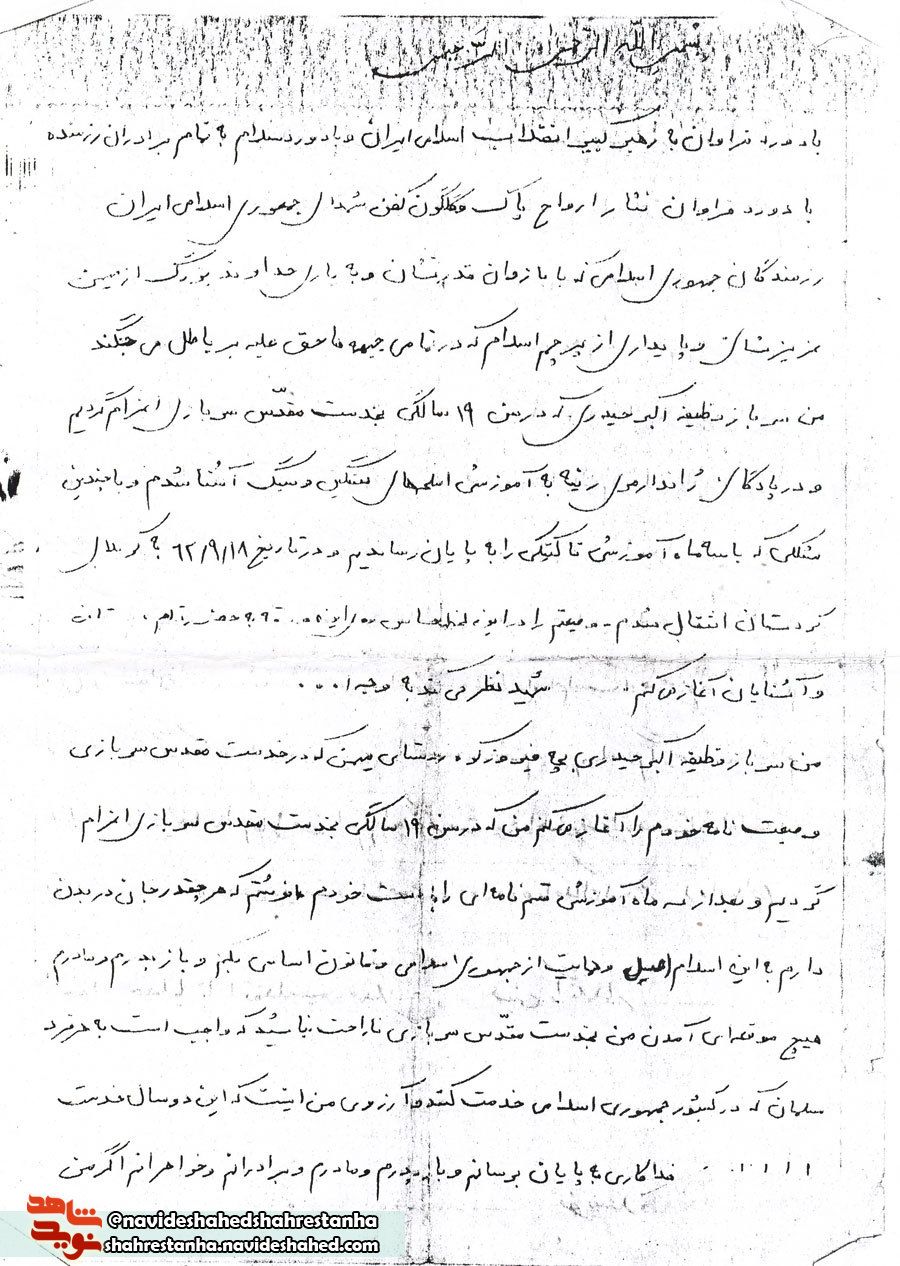 بسم الله الرحمن الرحیم
با درود فراوان به رهبر کبیر انقلاب اسلامی ایران و با درود و سلام به تمام برادران رزمنده
با درود فراوان نثار ارواح پاک و گلگون کفن شهدای جمهوری اسلامی ایران
رزمندگان جمهوری اسلامی که با بازوان قدرتشان و به یاری خداوند بزرگ از میهن
عزیزشان و پایداری از پرچم اسلام که در تمامی جبهه ها حق علیه بر باطل می جنگند
من سرباز وظیفه اکبر حیدری که در سن ۱۹ سالگی بخدمت مقدّس سربازی اعزام گردیم
و در پادگان ژاندارمری به آموزش اسلحه های سنگین و سبک آشنا شدم و با چندین
مشکلی که با سه ماه آموزش تاکتیکی را به پایان رساندیم و در تاریخ ۶۲/۹/۱۸ به کربلای
کردستان انتقال شدم . وصیتم را در این لحظه حساس
و آشنایان آغاز می کنم . شهید نظر می کند به وجه ا...
من سرباز وظیفه اکبر حیدری بچه فیروزکوه میهن که در خدمت مقدس سربازی
وصیت نامه خودم را آغاز می کنم من که در سن ۱۹ سالگی بخدمت مقدس سربازی اعزام
گردیم و بعد از سه ماه آموزش قسم نامه ای را به دست خودم نوشتم که هر چقدر جانی در بدن
دارم به این اسلام اصیل و حمایت از جمهوری اسلامی و قانون اساسی بکنم و باز پدرم و مادرم
هیچ موقعه ای آمدن من بخدمت مقدّس سربازی ناراحت نباشید که واجب است به هر فرد
مسلمان که در کشور جمهوری اسلامی خدمت کند و آرزوی من اینست که این دو سال خدمت
فداکاری به پایان برسانم و باز پدرم و مادرم و برادرانم و خواهرانم اگر من
شاهد
نوید
@navideshahedshahrestanha
shahrestanha.navideshahed.com